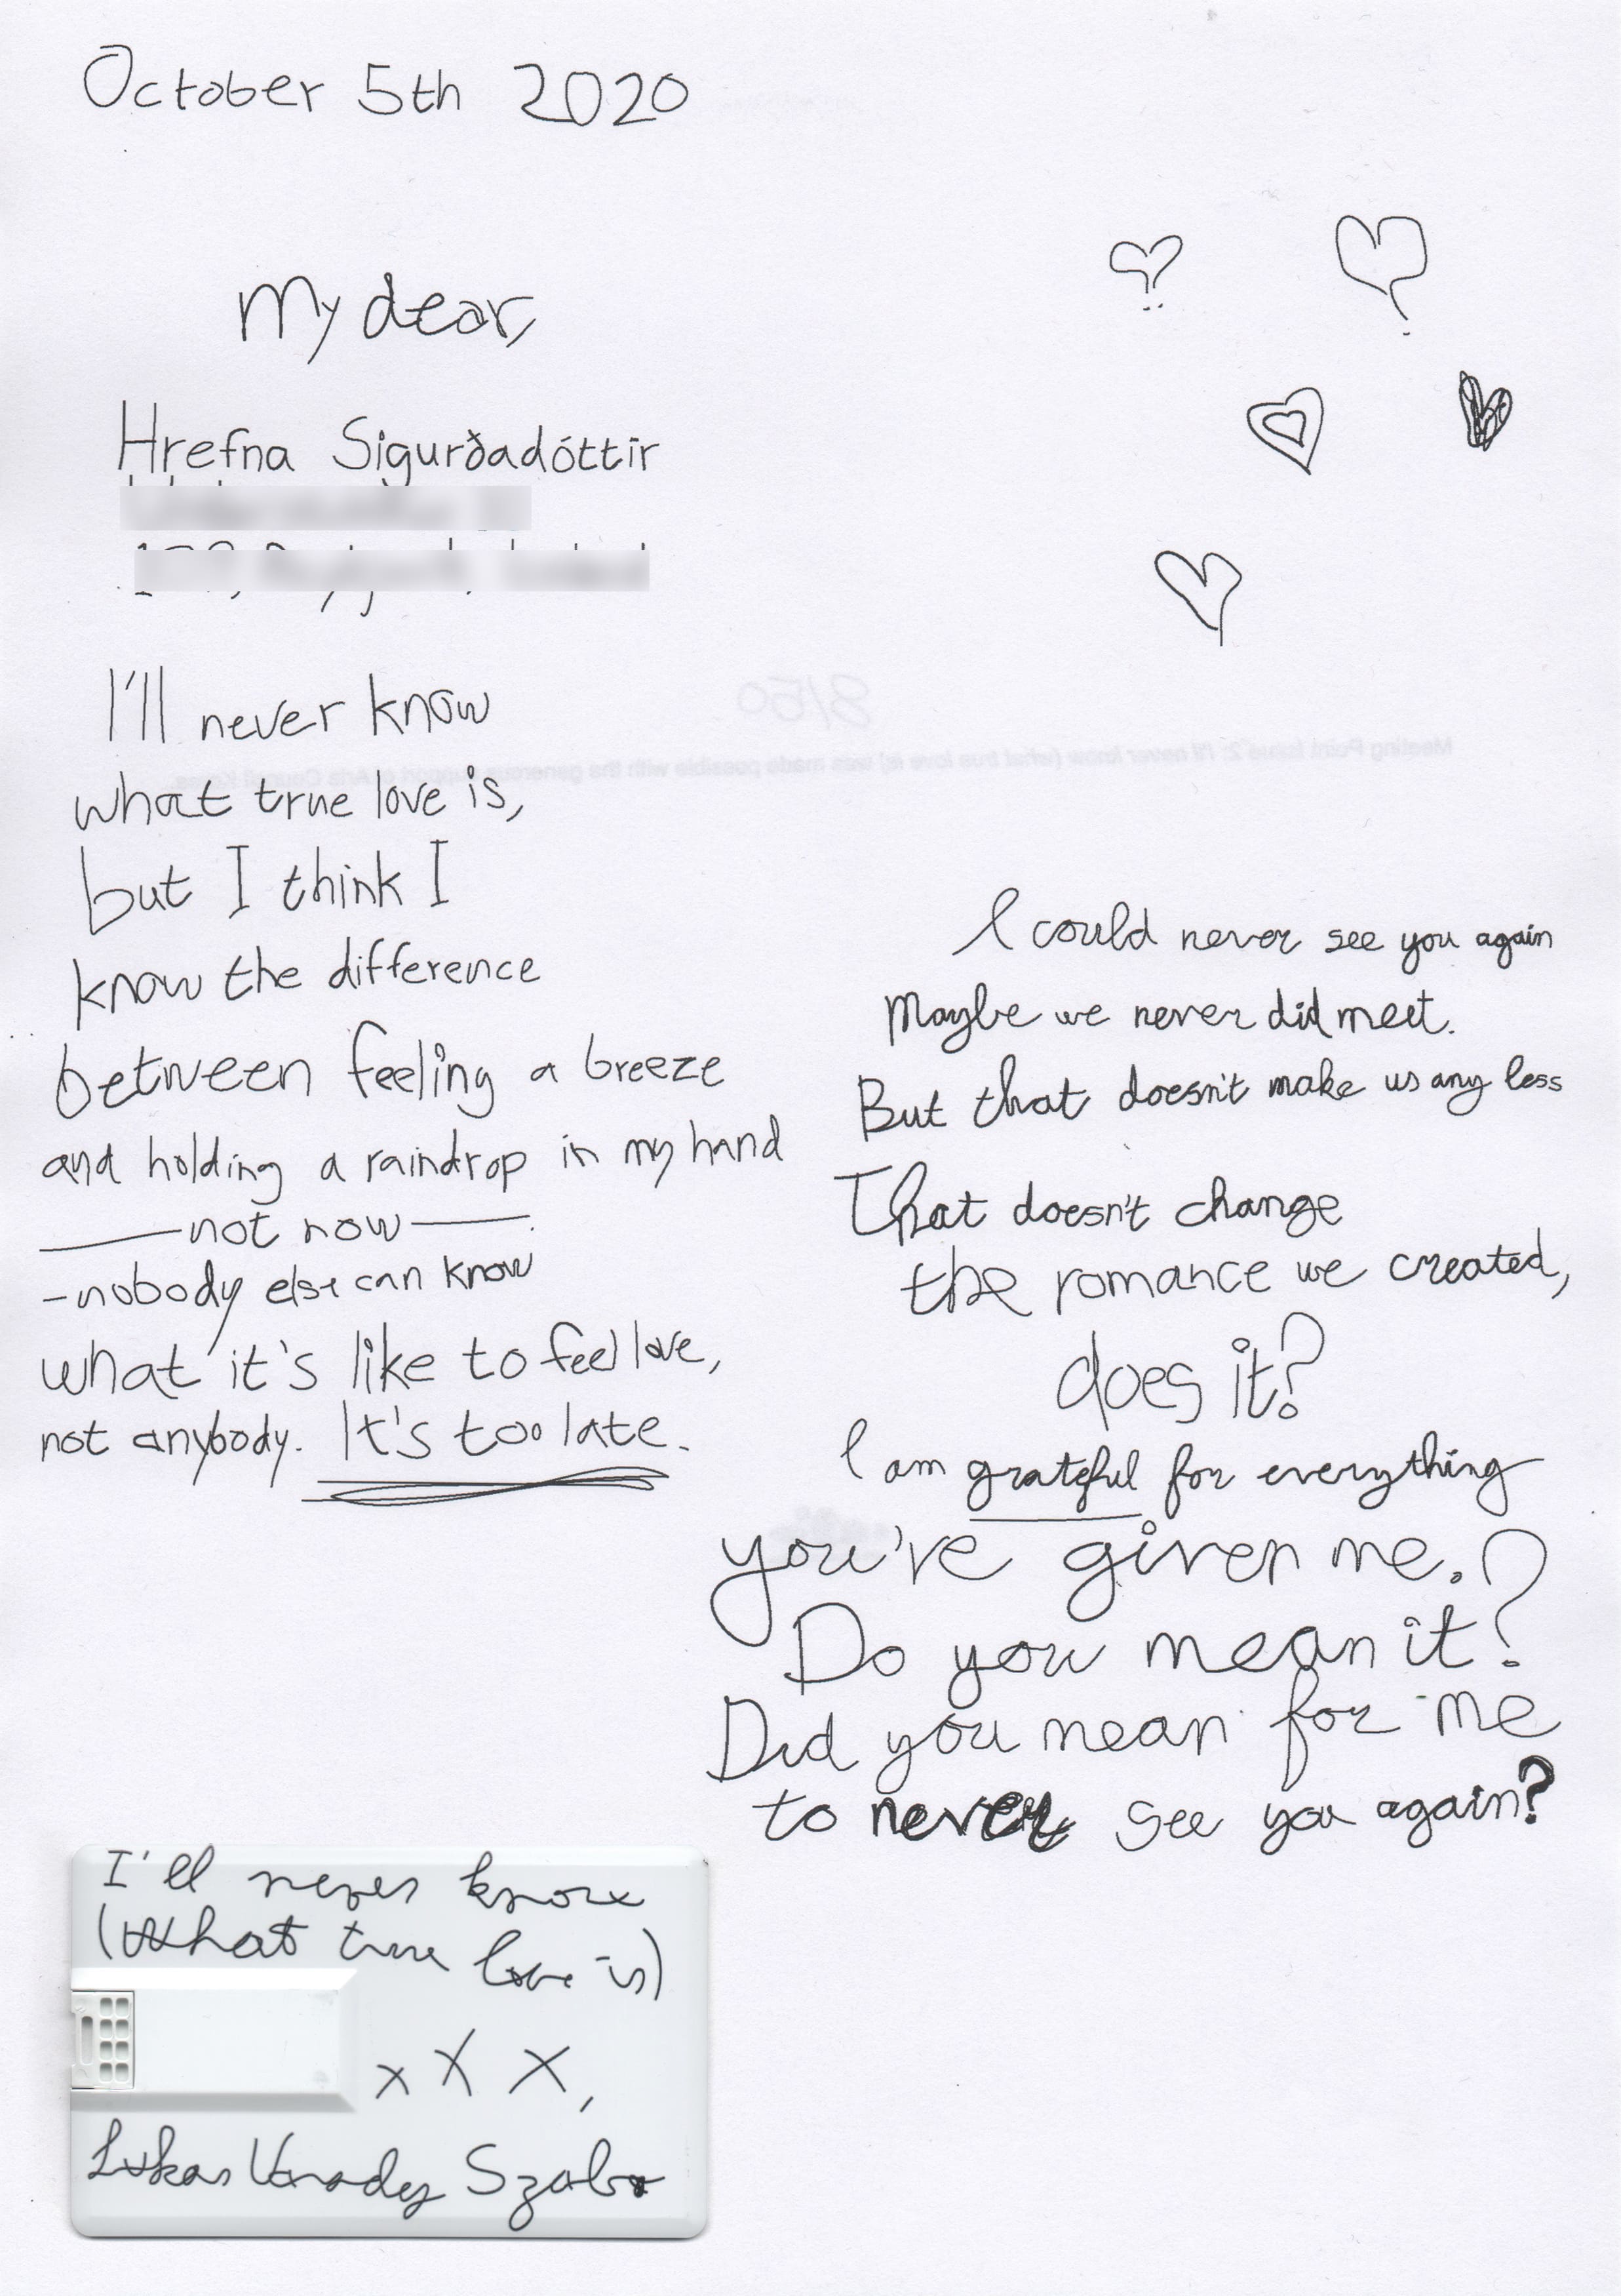 October 5th 2020
My dear,
Hrefna Sigurðadóttir
I'll never know
what true love is,
but I think I
know the difference
between feeling a breeze
and holding a raindrop in my hand
—not now—
-nobody else can know
what it's like to feel love,
not anybody. It's too late.
I could never see you again
Maybe we never did meet.
But that doesn't make us any less
That doesn't change
the romance we created,
does it?
I am grateful for everything
you've given me.
Do you mean it?
Did you mean for me
to never see you again?
8/50
Meeting Point Issue 2: I'll never know (what true love is) was made possible with the generous support of Arts Council Korea
I'll never know
(What true love is)
x X X,
Lukas Varady Szabo